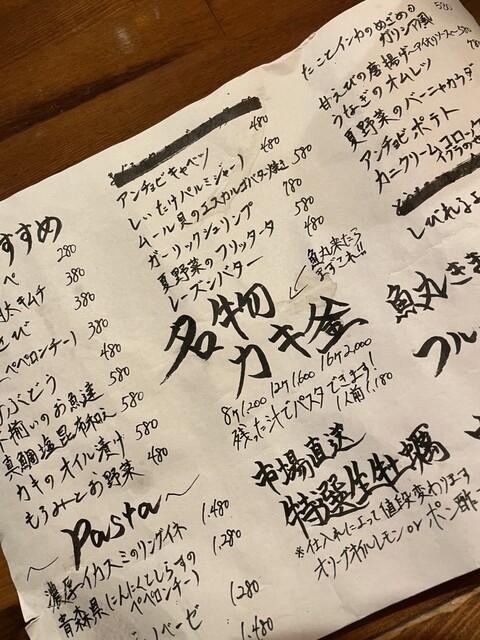 すすめ
280
ペ 380
太キムチ 380
さび 380
ペペロンチーノ 480
ぶどう 580
揃いのお魚達 580
真鯛塩昆布和え 580
カキのオイル漬け 580
もろみーとお野菜 480
アンチョビキャベツ 480
しいたけパルミジャーノ 480
ムール貝のエスカルゴバター焼き 580
ガーリックシュリンプ 780
夏野菜のフリッタータ 580
レーズンバター 480
魚丸来たら
まずこれ!!
名物
カキ釜
8ケ1,200 12ケ1,600 16ケ2,000
残った汁でパスタできます!
1人前1,180
市場直送
特選生牡蠣
※仕入れによって値段変わります
オリーブオイルレモン or ポン酢
Pasta
濃厚イカスミのリングイネ 1,480
青森県にんにくとしらすの
ペペロンチーノ 1,280
ベーゼ 1,280
1,480
たことインカのめざめの
ガリシア風 580
甘えびの唐揚げ
うなぎのオムレツ
夏野菜のバーニャカウダ
アンチョビポテト
カニクリームコロッケ
イクラのせ
しびれるよ
魚丸きま
フル